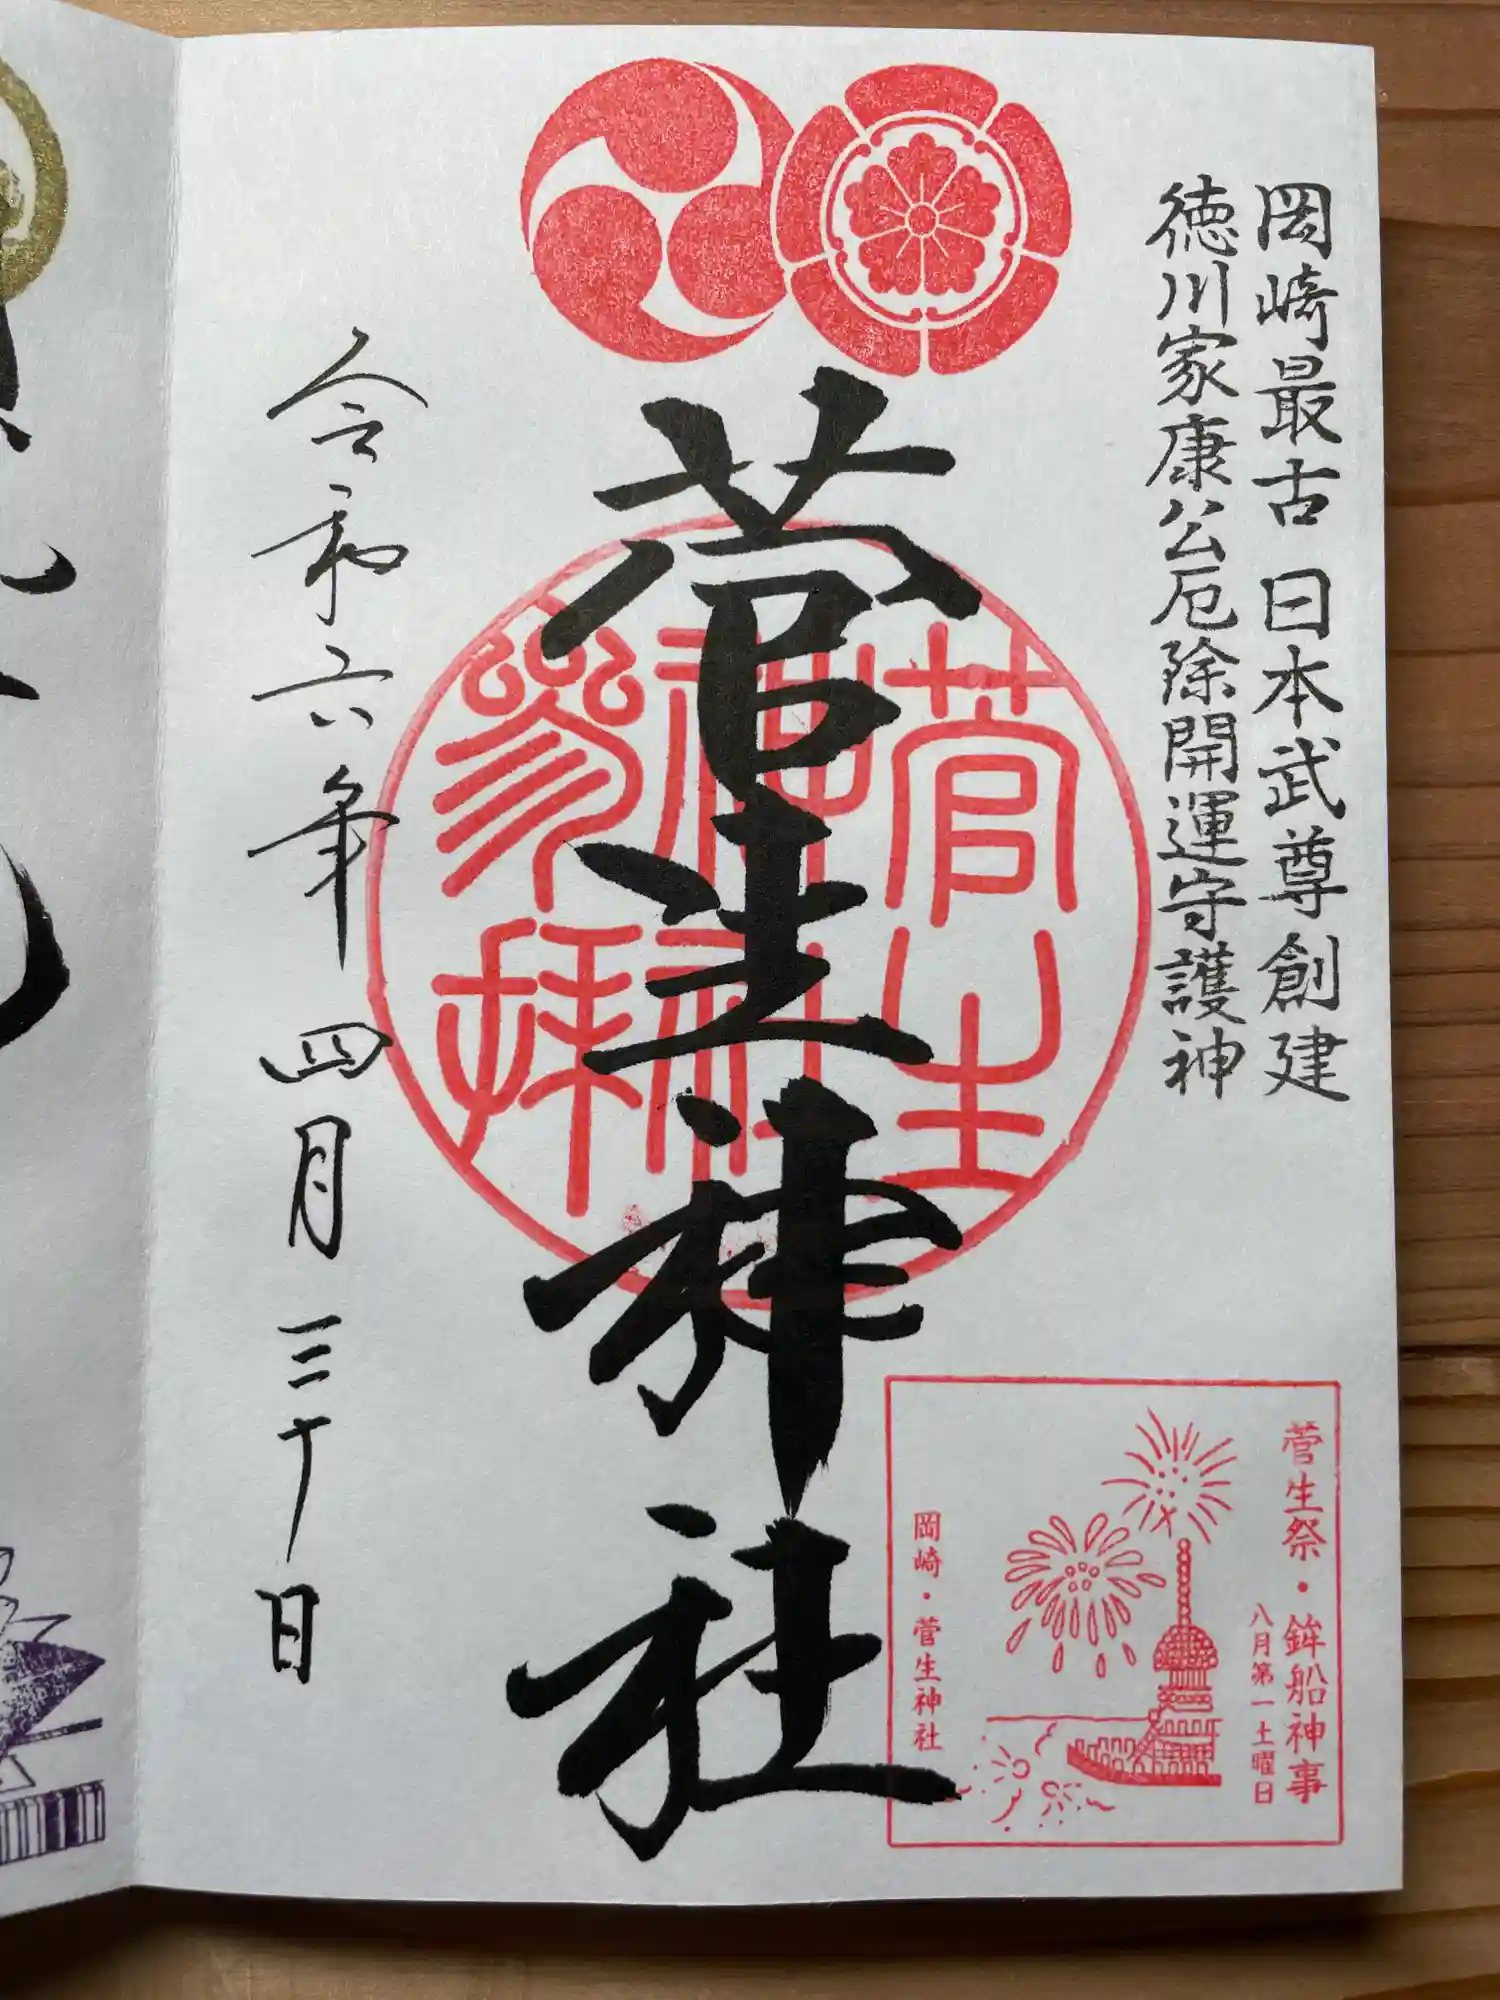 岡崎最古 日本武尊創建
徳川家康公厄除開運守護神
菅生神社
菅生
神社
参拝
令和六年 四月三十日
菅生祭・鉾船神事
八月第一土曜日
岡崎・菅生神社